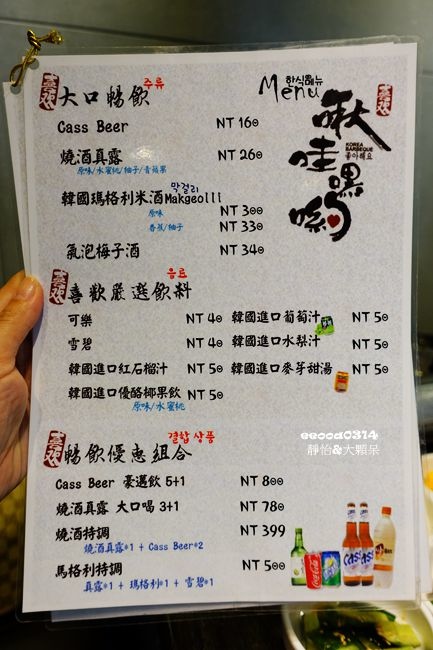 한식메뉴
Menu
啾哇嘿喲
KOREA
BARBEQUE
좋아해요
喜歡
大口暢飲 주류
Cass Beer NT 160
燒酒真露 NT 260
原味/水蜜桃/柚子/青蘋果
韓國瑪格利米酒Makgeolli 막걸리
原味 NT 300
香蕉/柚子 NT 330
氣泡梅子酒 NT 340
喜歡
喜歡嚴選飲料 음료
可樂 NT 40 韓國進口葡萄汁 NT 50
雪碧 NT 40 韓國進口水梨汁 NT 50
韓國進口紅石榴汁 NT 50 韓國進口麥芽甜湯 NT 50
韓國進口優酪椰果飲 NT 50
原味/水蜜桃
eeooa0314
靜怡&大顆呆
喜歡
暢飲優惠組合 결합 상품
Cass Beer 豪邁飲 5+1 NT 800
燒酒真露 大口喝 3+1 NT 780
燒酒特調 NT 399
燒酒真露*1 + Cass Beer*2
馬格利特調 NT 500
真露*1 + 瑪格利*1 + 雪碧*1